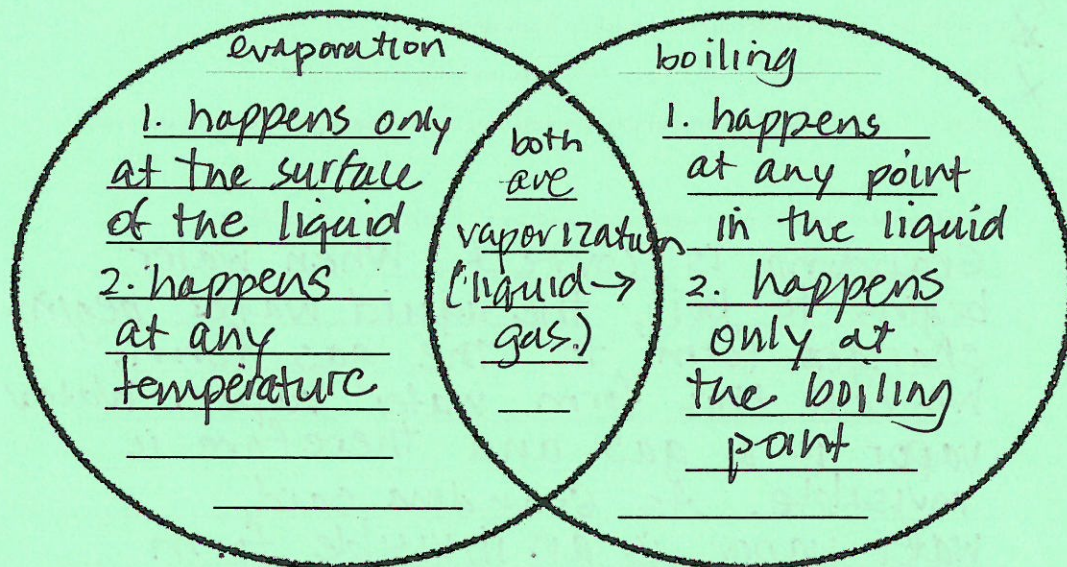 evaporation
1. happens only
at the surface
of the liquid
2. happens
at any
temperature
both
are
vaporization
(liquid →
gas.)
boiling
1. happens
at any point
in the liquid
2. happens
only at
the boiling
point